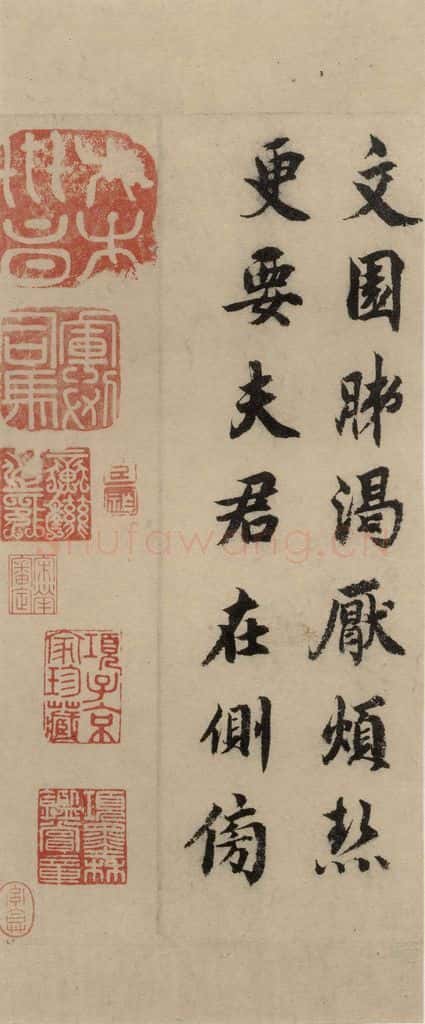 文園肺渴厭煩熱
更要夫君在側傍
項子京家珍藏
項墨林鑑賞章
shufawang.cn